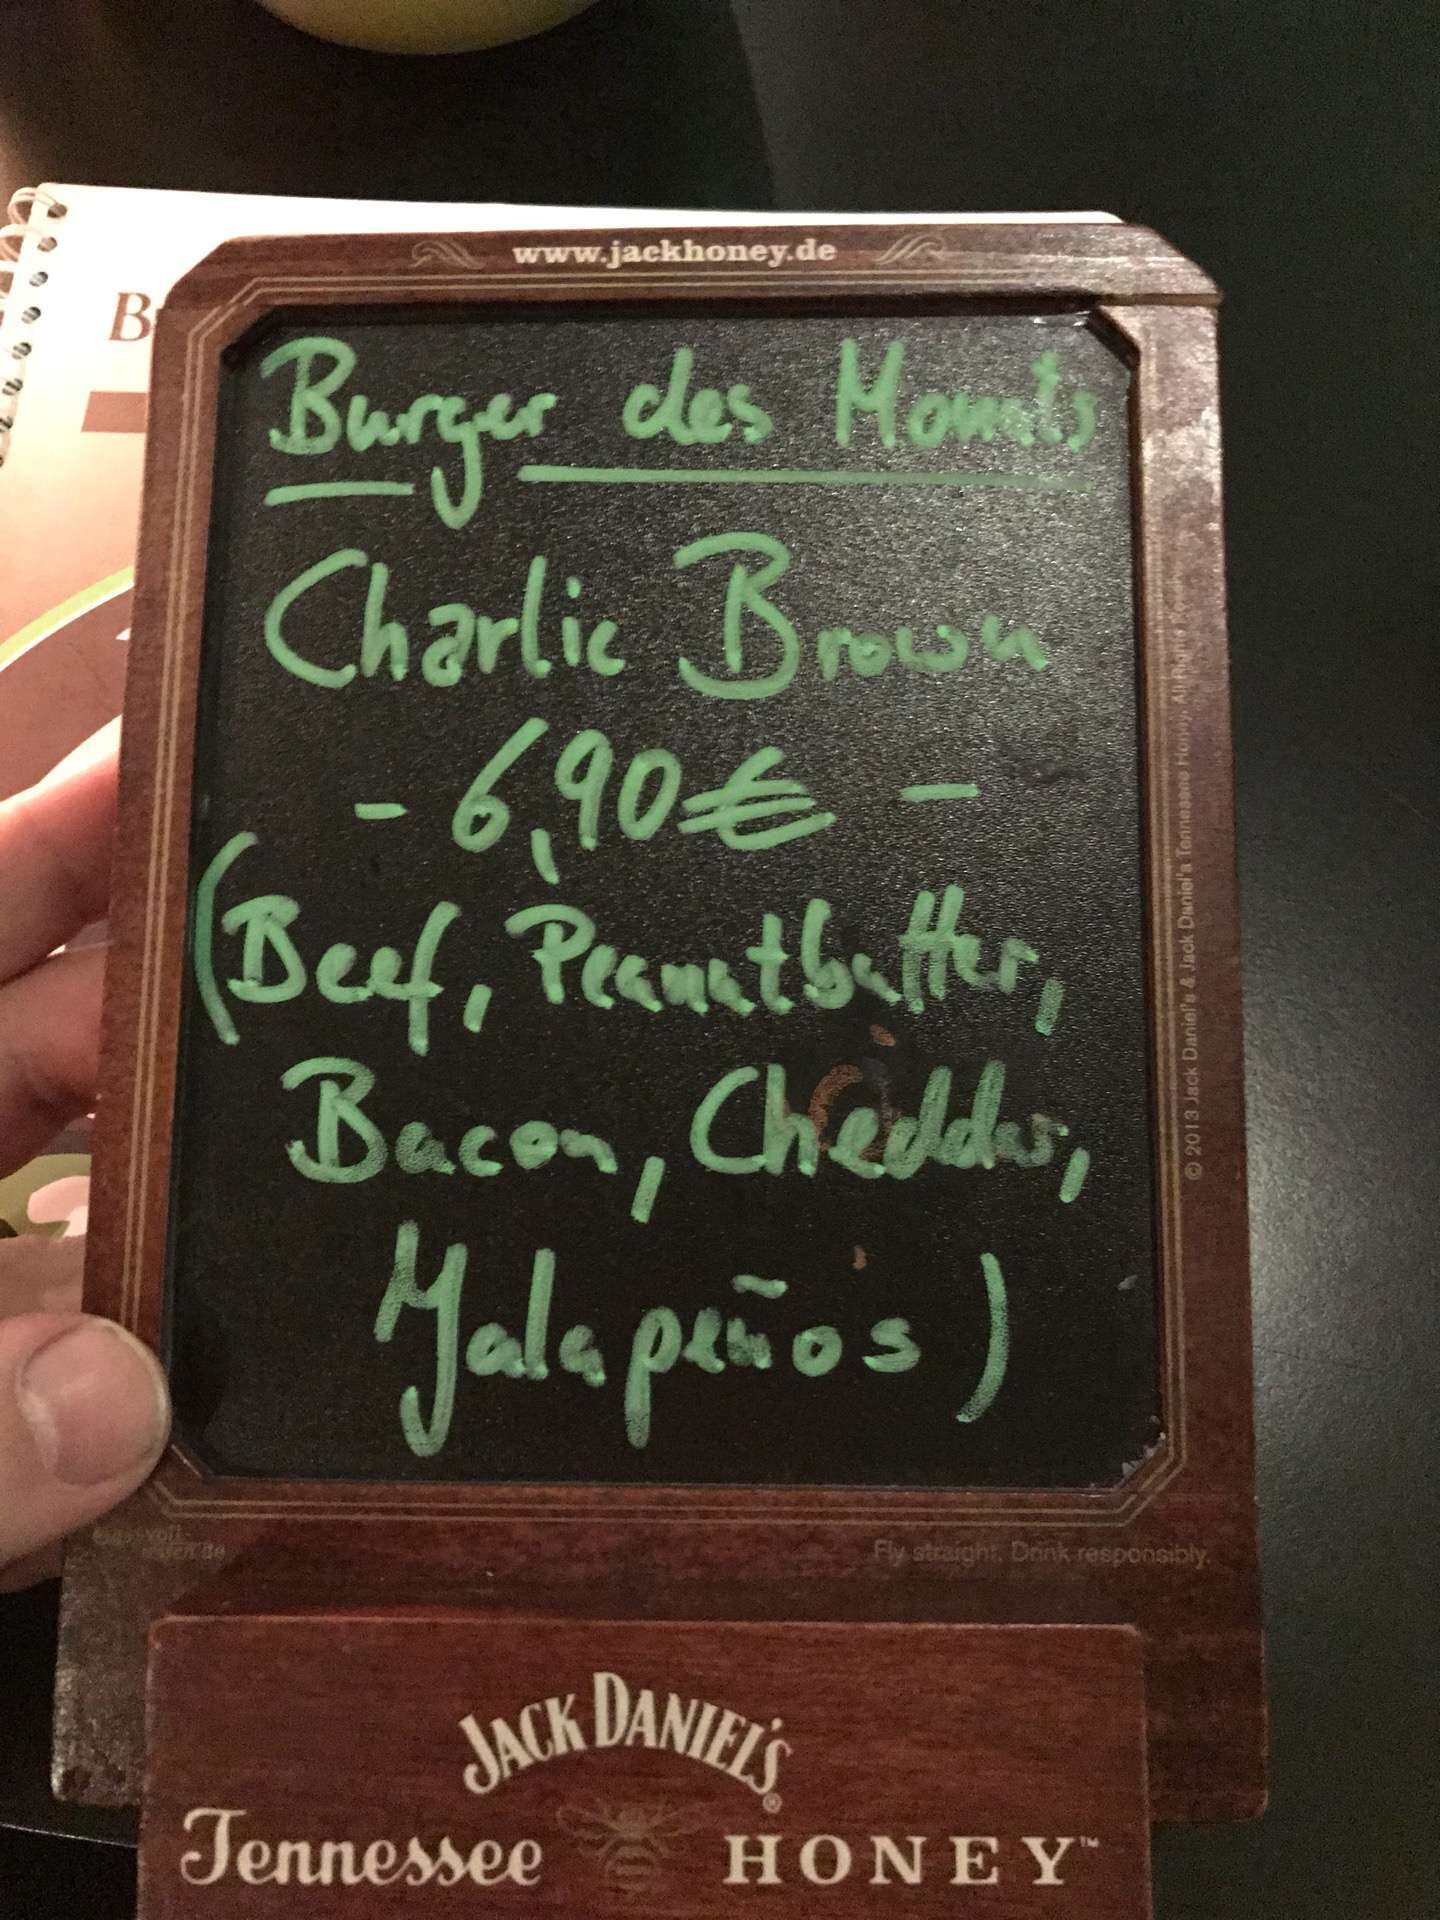 www.jackhoney.de
Burger des Monats
Charlie Brown
- 6,90€ -
(Beef, Peanutbutter,
Bacon, Cheddar,
Jalapeños)
© 2013 Jack Daniel's & Jack Daniel's Tennessee Honey. All Rights
Fly straight. Drink responsibly.
JACK DANIEL'S®
Tennessee HONEY™